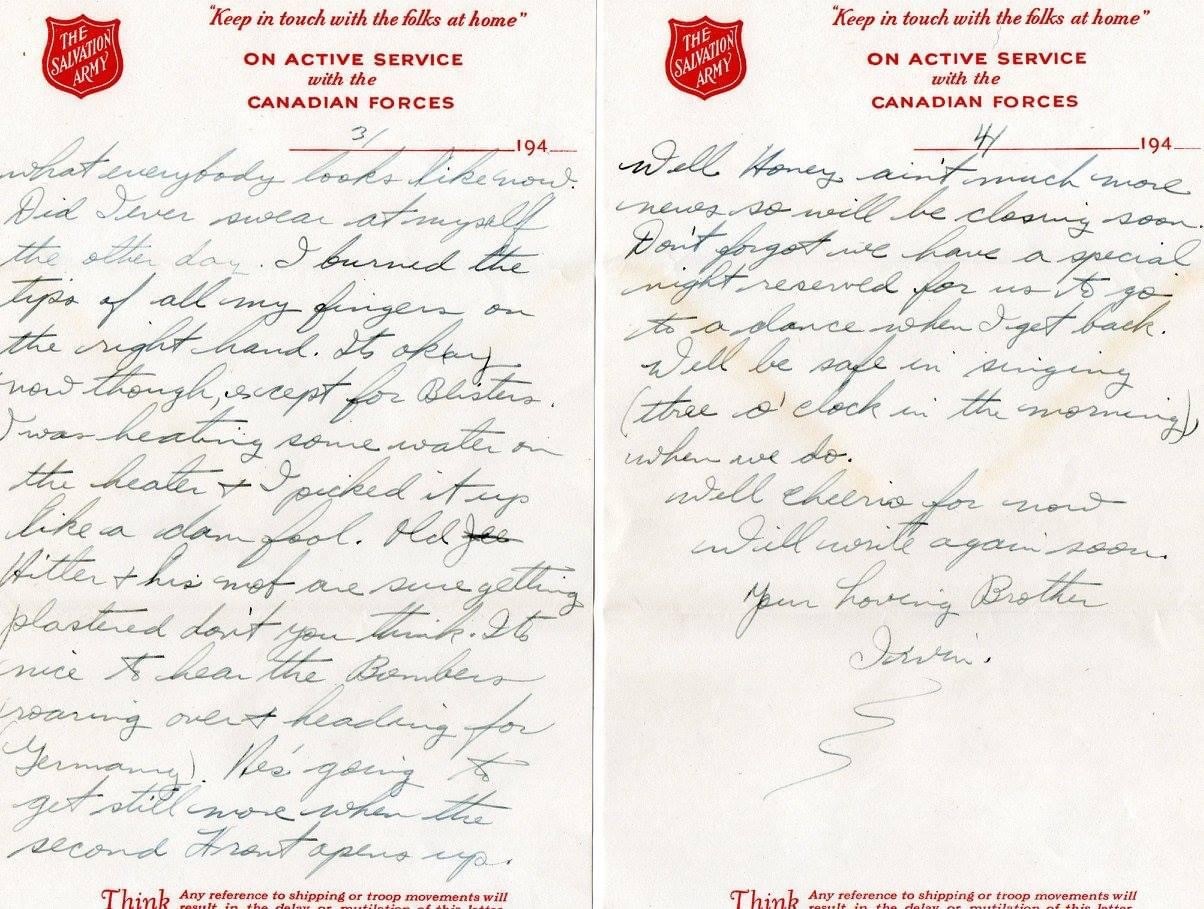 "Keep in touch with the folks at home"
THE
SALVATION
ARMY
ON ACTIVE SERVICE
with the
CANADIAN FORCES
3/ 194
what everybody looks like now.
Did I ever swear at myself
the other day. I burned the
tips of all my fingers on
the right hand. Its okay
now though, except for Blisters.
I was heating some water on
the heater & I picked it up
like a dam fool. Old
Hitler & his mob are sure getting
plastered don't you think. Its
nice to hear the Bombers
roaring over & heading for
Germany). He's going to
get still more when the
second Front opens up.
Think Any reference to shipping or troop movements will
result in the delay or mutilation of this letter
"Keep in touch with the folks at home"
THE
SALVATION
ARMY
ON ACTIVE SERVICE
with the
CANADIAN FORCES
4/ 194
Well Honey ain't much more
news so will be closing soon.
Don't forgot we have a special
night reserved for us to go
to a dance when I get back.
Well be safe in singing
(three o'clock in the morning)
when we do.
Well cheerio for now
Will write again soon.
Your Loving Brother
Irvin.
Think Any reference to shipping or troop movements will
result in the delay or mutilation of this letter